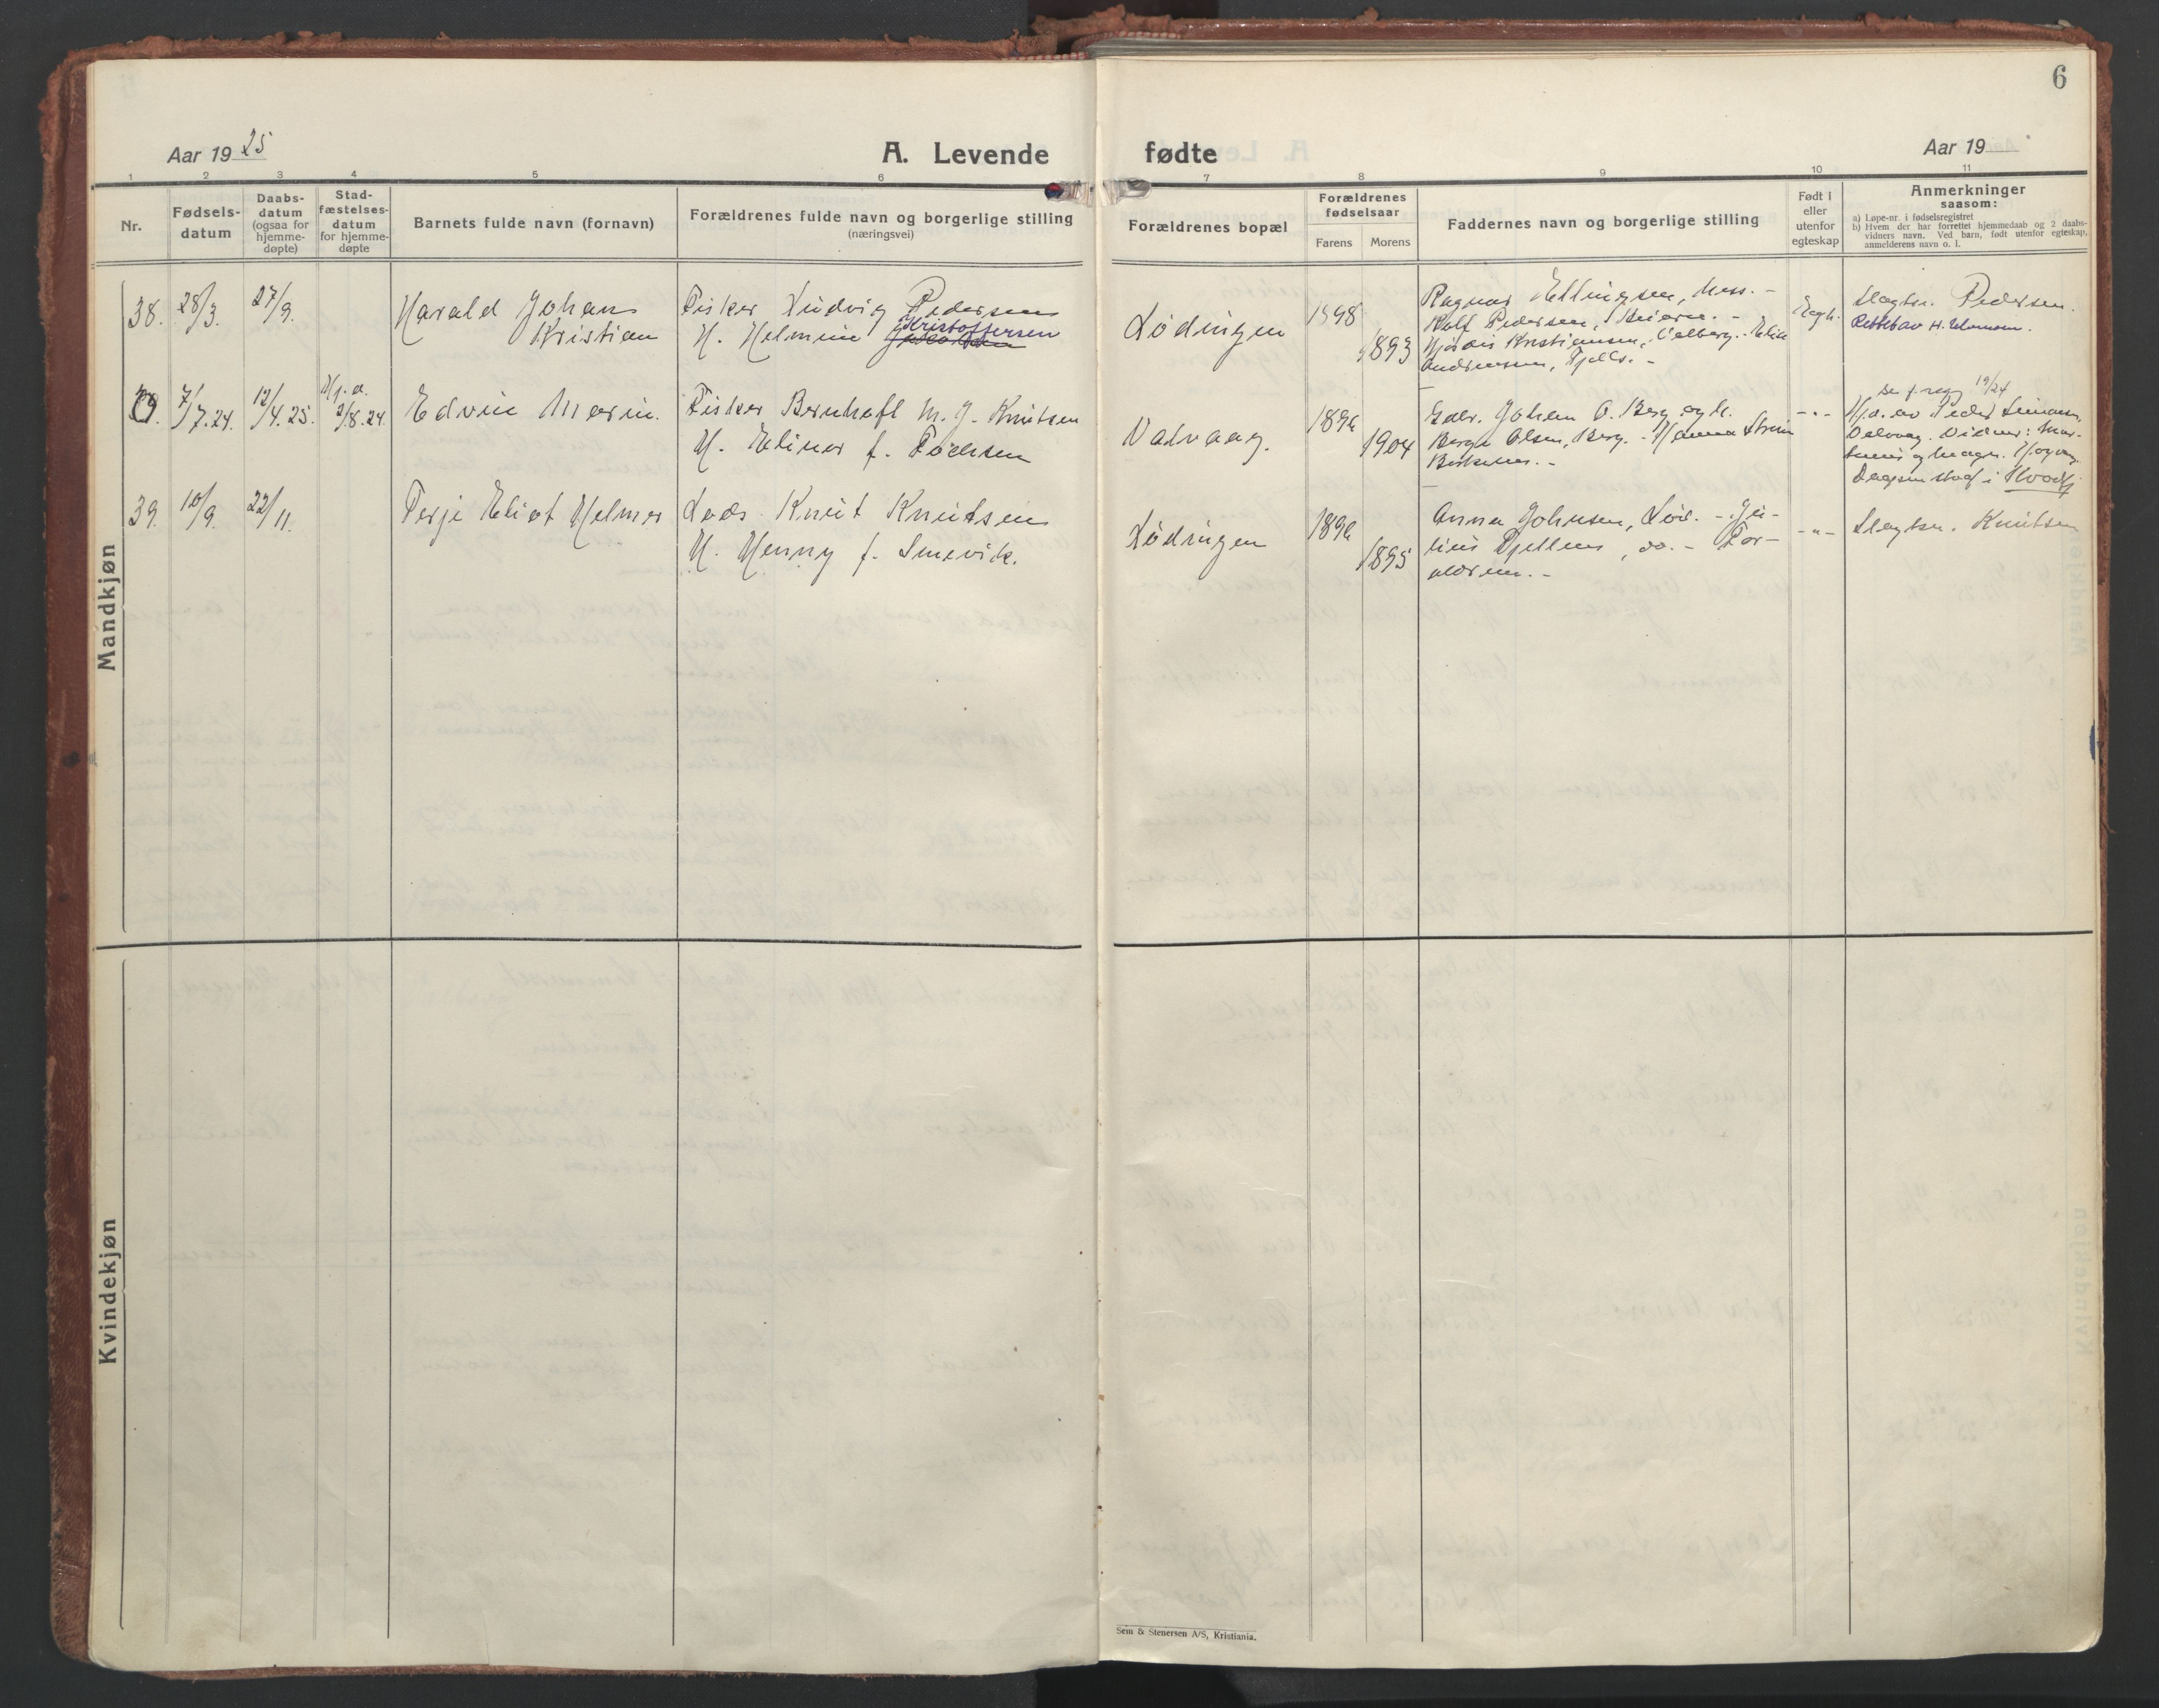 6
Aar 1925
A. Levende fødte
Aar 19
1 2 3 4 5 6 7 8 9 10 11
Nr.
Fødsels-
datum
Daabs-
datum
(ogsaa for
hjemme-
døpte)
Stad-
fæstelses-
datum
for hjemme-
døpte
Barnets fulde navn (fornavn)
Forældrenes fulde navn og borgerlige stilling
(næringsvei)
Forældrenes bopæl
Forældrenes
fødselsaar
Farens Morens
Faddernes navn og borgerlige stilling
Født i
eller
utenfor
egteskap
Anmerkninger
saasom:
a) Løpe-nr. i fødselsregistret
b) Hvem der har forrettet hjemmedaab og 2 daabs-
vidners navn. Ved barn, født utenfor egteskap,
anmelderens navn o. l.
Mandkjøn
38.
28/3.
27/9.
Harald Johan
Kristian
Fisker Ludvig Pedersen
H. Helmine Kristoffersen
Lødingen
1898
1893
Ragnar Ellingsen, Ness. -
Rolf Pedersen, Beiarn. -
Hjørdis Kristiansen, Ulvberg. - Elise
Andreassen, Fjells. -
Egh.
Slagtsn. Pedersen.
Rettet av H.
9.
7/7.24.
12/4.25.
Hj.d.
2/8.24.
Edvin Marin.
Fisker Bernhoft M. J. Knutsen
H. Elinor f. Pedersen
Valvaag.
189
1904
Gdbr. Johan O. Berg og h.
Berge Olsen, Berg. - Hanna
-"-
se f.reg 19/24
Hj.d. av Peder Simonsen,
Valvaag. Vidner: Mar-
og Hj. og
i
39.
10/9.
22/11.
Terje Eliot Helmer
Lods Knut Knutsen
H. Henny f. Smevik.
Lødingen
189
1895
Anna Johnsen, Lød. - Ju-
lius Fjellem, do. - For-
ældrene. -
-"-
Slagtsn. Knutsen
Kvindekjøn
Sem & Stenersen A/S, Kristiania.